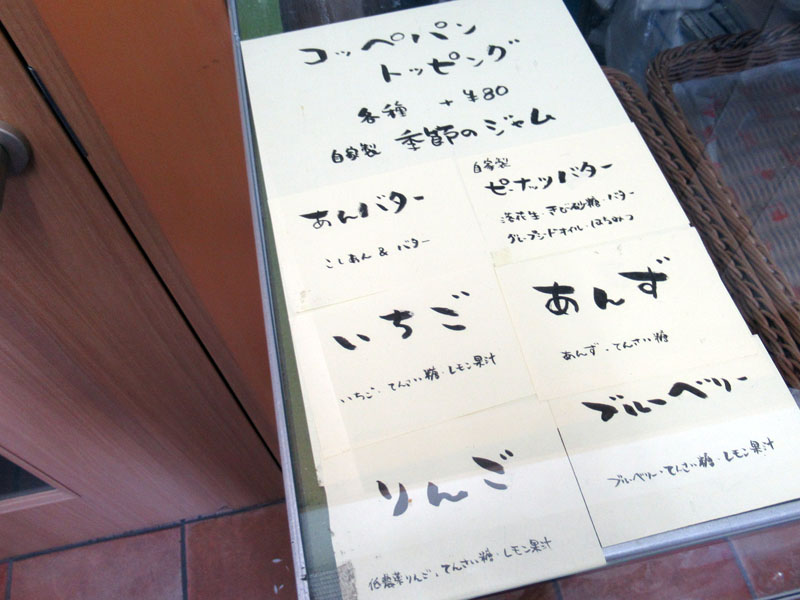 コッペパン
トッピング
各種 + ¥80
自家製 季節のジャム
あんバター
こしあん & バター
自家製
ピーナッツバター
落花生・きび砂糖・バター
グレープシードオイル・はちみつ
いちご
いちご・てんさい糖・レモン果汁
あんず
あんず・てんさい糖
りんご
低農薬りんご・てんさい糖・レモン果汁
ブルーベリー
ブルーベリー・てんさい糖・レモン果汁